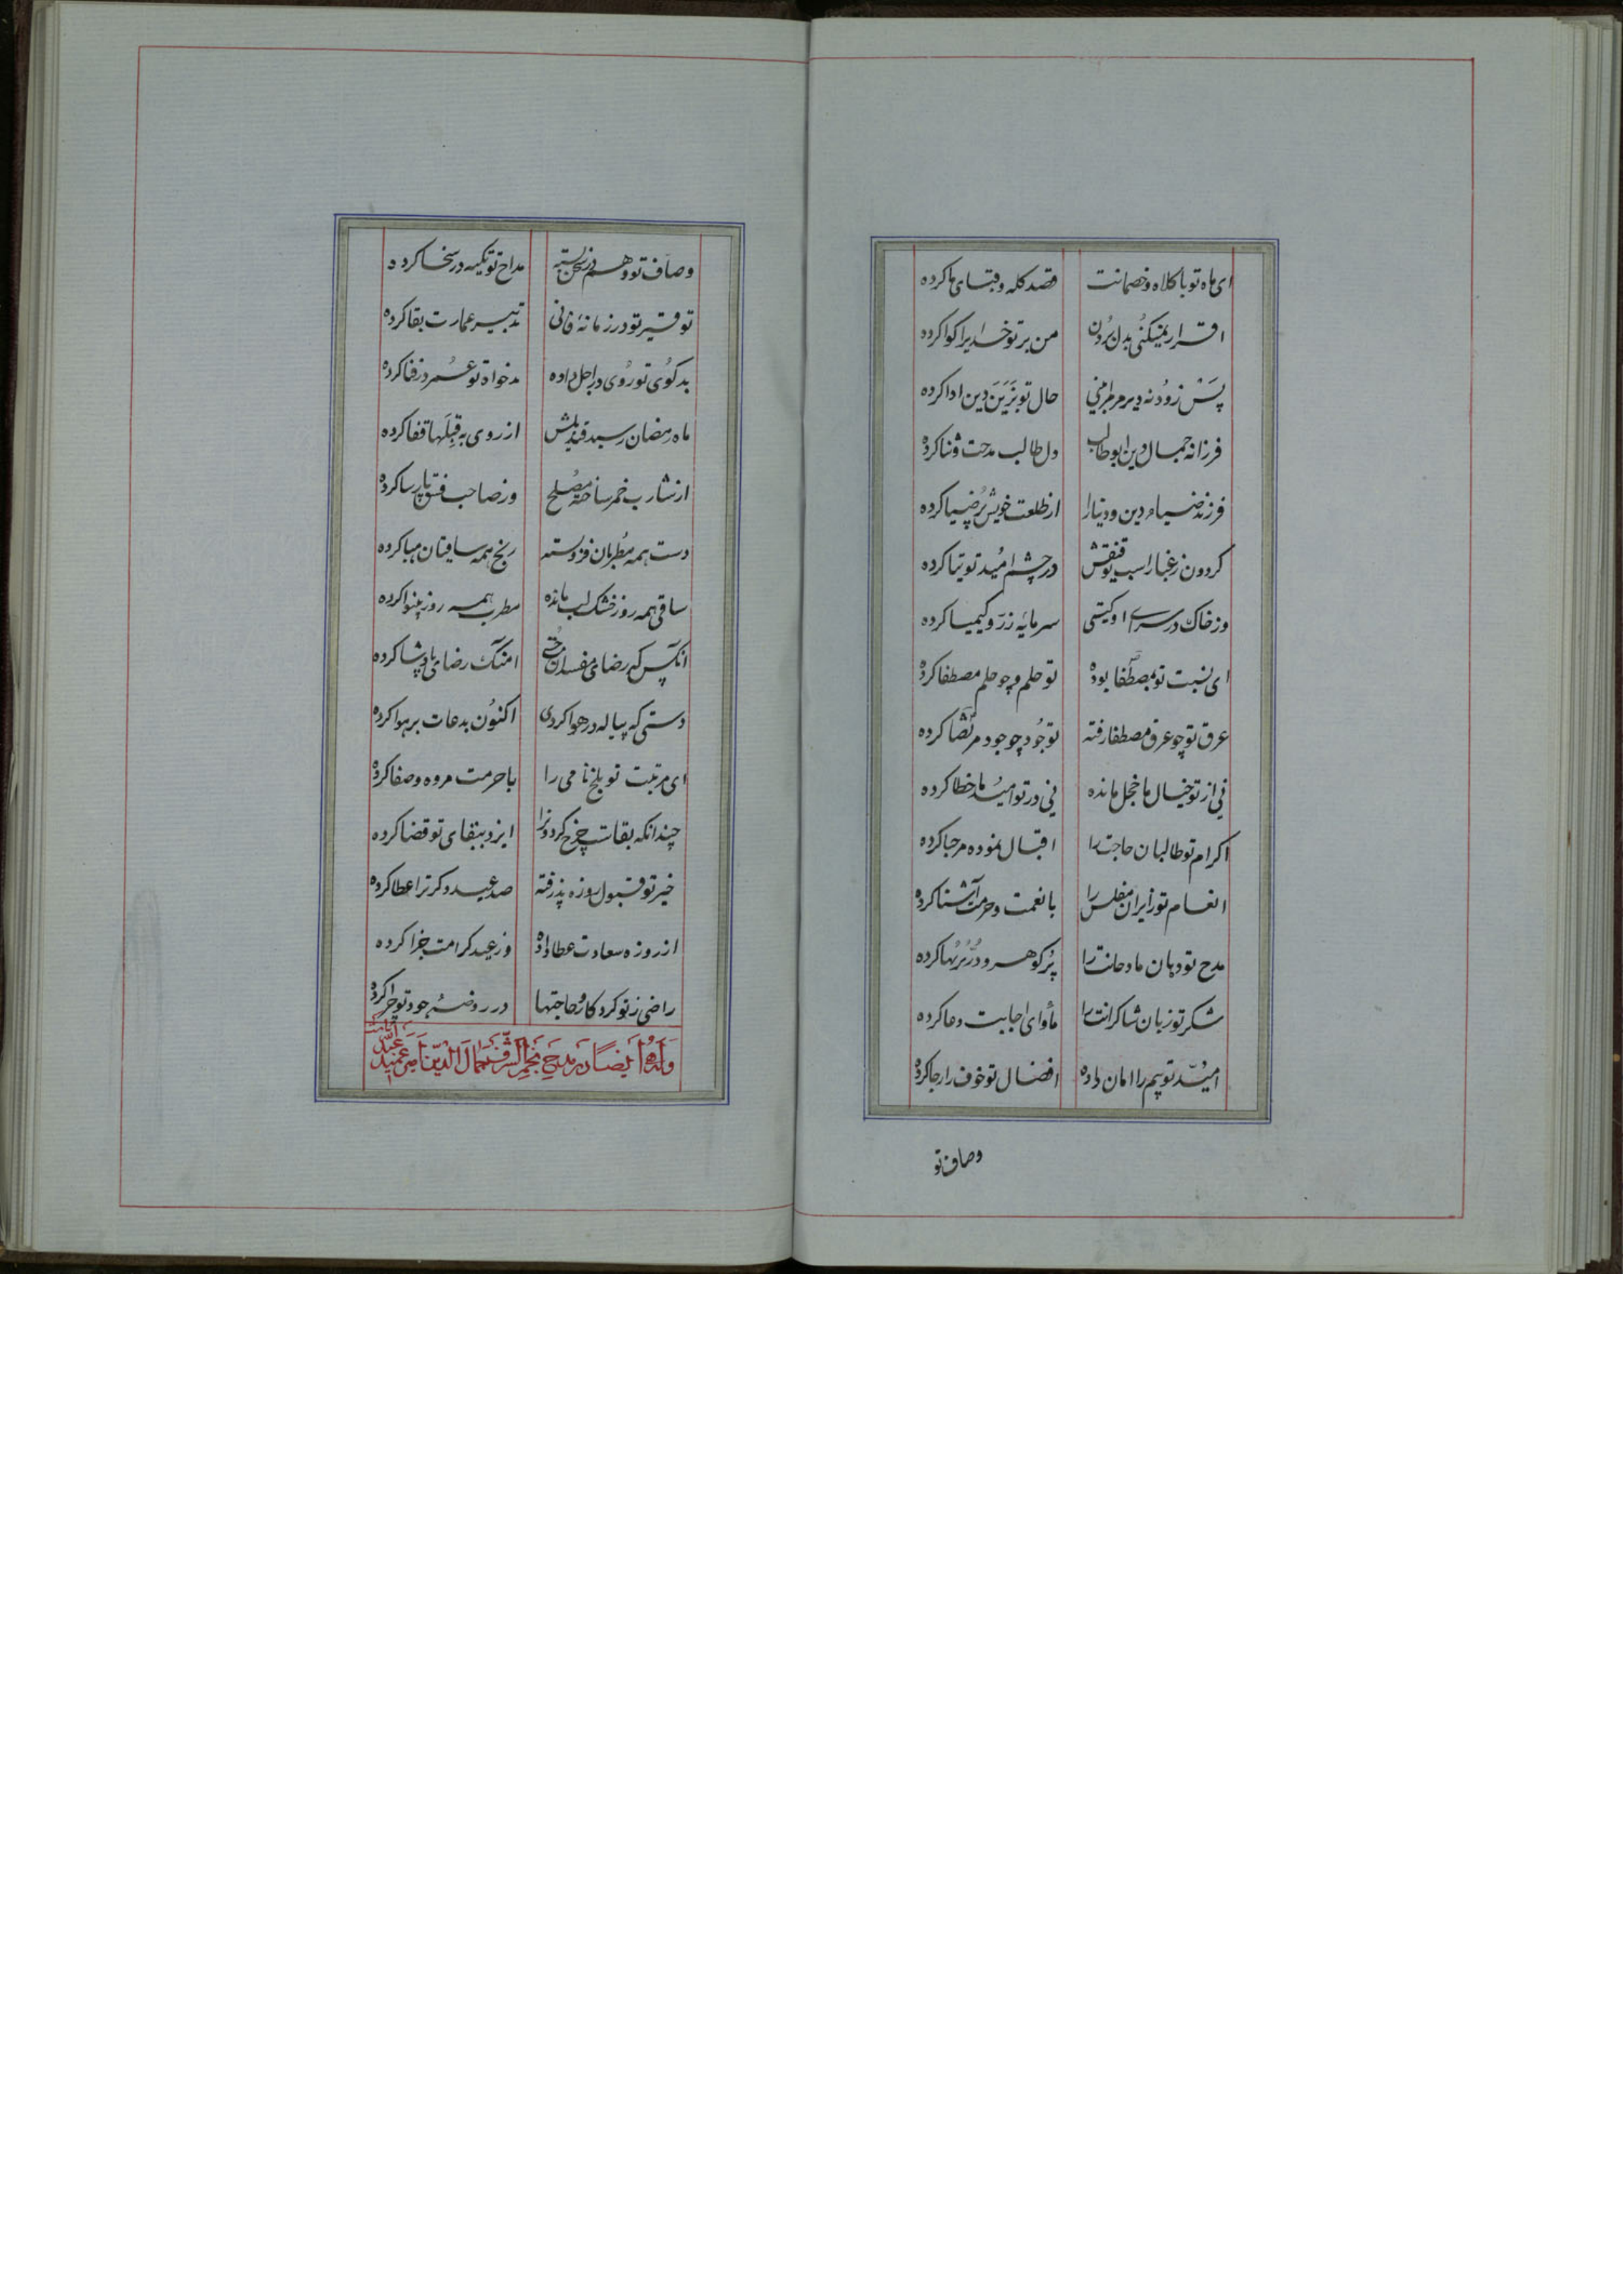 ای ماه تو با کلاه و خصمانت قصد کله و قبای ما کرده
اقرار نمیکنی بدل بردن من بر تو خدایرا کوا کرده
پس زود نه دیر مر مرا بینی حال تو بزین دین ادا کرده
فرزانه جمال دین ابوطالب دل طالب مدحت و ثنا کرده
فرزند ضیاء دین و دنیا را از طلعت خویش پر ضیا کرده
کردون ز غبار اسب توفیقش در چشم امید توتیا کرده
وز خاک در سرای او کیتی سرمایه زر و کیمیا کرده
ای نسبت تو بمصطفا بوده تو حلم چو حلم مصطفا کرده
عرق تو چو عرق مصطفا رفته تو جود چو جود مرتضا کرده
نی از تو خیال ما خجل مانده نی در تو امید ما خطا کرده
اکرام تو طالبان حاجت را اقبال نموده مرحبا کرده
انعام تو زایران مفلس را با نعمت و حرمت آشنا کرده
مدح تو دهان مادحانت را پر کوهر و در پر بها کرده
شکر تو زبان شاکرانت را مأوای اجابت دعا کرده
امید تو بیم را امان داده افضال تو خوف را رجا کرده
وصاف تو
وصاف تو وهم در سخن بسته مداح تو تکیه در سخا کرده
توقیر تو در زمانهٔ فانی تدبیر عمارت بقا کرده
بد کوی تو روی در اجل داده بدخواه تو عمر در فنا کرده
ماه رمضان رسید قندیلش از روی به قبلها قفا کرده
از شارب خمر ساخته مصلح وز صاحب فسق پارسا کرده
دست همه مطربان فرو بسته رنج همه ساقیان هبا کرده
ساقی همه روز خشک لب مانده مطرب همه روز بینوا کرده
آنکس که رضای مفسدان جستی امنک رضای پادشا کرده
دستی که پیاله در هوا کردی اکنون بدعات بر هوا کرده
ای مرتبت تو بلخ نامی را با حرمت مروه و صفا کرده
چندانکه بقاست چرخ کردونرا ایزد ببقای تو قضا کرده
خیر تو قبول روزه پذرفته صد عید دکر ترا عطا کرده
از روزه سعادت عطا داده وز عید کرامت جزا کرده
راضی ز تو کردکار و حاجتها در روضهٔ جود تو چرا کرده
وله ایضا در مدح نجم الشرف جمال الدین